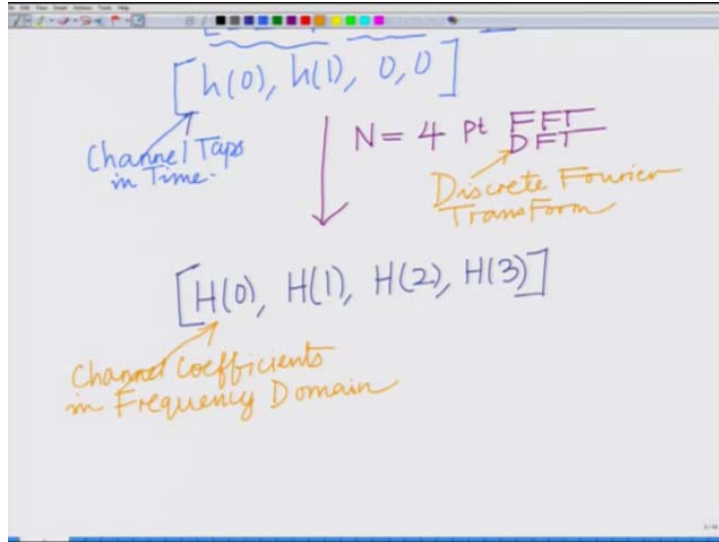 [h(0), h(1), 0,0]
Channel Taps
in Time.
N= 4 pt FFT
DFT
Discrete Fourier
TransForm
[H(0), H(1), H(2), H(3)]
Channel Coefficients
in Frequency Domain